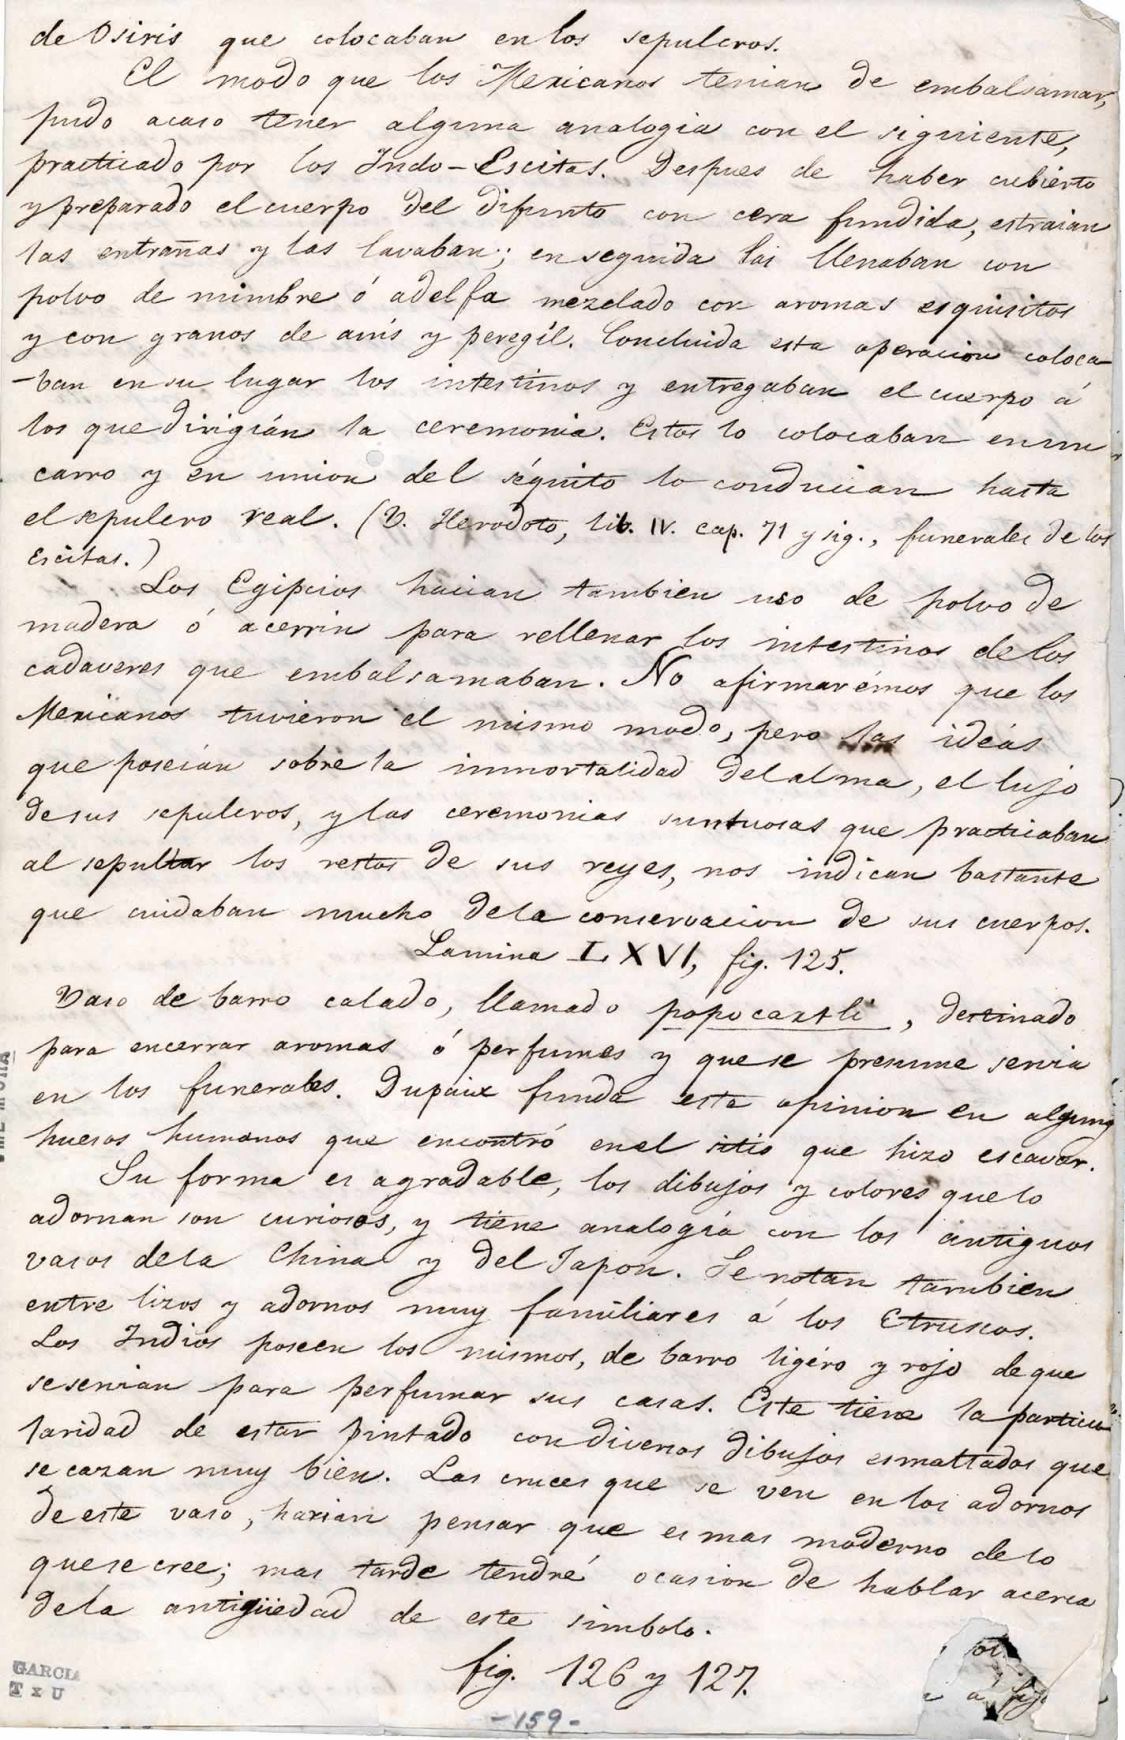 de Osiris que colocaban en los sepulcros.
El modo que los Mexicanos tenian de embalsamar,
pudo acaso tener alguna analogia con el siguiente,
practicado por los Indo-Escitas. Despues de haber cubierto
y preparado el cuerpo del difunto con cera fundida, estraian
las entrañas y las lavaban; en seguida las llenaban con
polvo de mimbre ó adelfa mezclado con aromas esquisitos
y con granos de anís y peregil. Concluida esta operacion coloca-
-ban en su lugar los intestinos y entregaban el cuerpo á
los que dirigián la ceremonia. Estos lo colocaban en un
carro y en union del séquito lo conducian hasta
el sepulcro real. (V. Herodoto, lib. IV. cap. 71 y sig., funerales de los
Escitas.)
Los Egipcios hacian tambien uso de polvo de
madera ó acerrin para rellenar los intestinos de los
cadaveres que embalsamaban. No afirmarémos que los
Mexicanos tuvieron el mismo modo, pero las idéas
que poseián sobre la inmortalidad del alma, el lujo
de sus sepulcros, y las ceremonias suntuosas que practicaban
al sepultar los restos de sus reyes, nos indican bastante
que cuidaban mucho de la conservacion de sus cuerpos.
Lamina LXVI, fig. 125.
Vaso de barro calado, llamado popocaxtli, destinado
para encerrar aromas ó perfumes y que se presume servia
en los funerales. Dupaix funda esta opinion en algunos
huesos humanos que encontró en el sitio que hizo escavar.
Su forma es agradable, los dibujos y colores que lo
adornan son curiosos, y tiene analogía con los antiguos
vasos de la China y del Japon. Se notan tambien
entre lizos y adornos muy familiares á los Etruscos.
Los Indios poseen los mismos, de barro ligéro y rojo de que
se servian para perfumar sus casas. Este tiene la particu-
laridad de estar pintado con diversos dibujos esmaltados que
se cazan muy bien. Las cruces que se ven en los adornos
de este vaso, harian pensar que es mas moderno de lo
que se cree; mas tarde tendré ocasion de hablar acerca
de la antigüedad de este simbolo.
fig. 126 y 127.
GARCIA
TxU
-159-